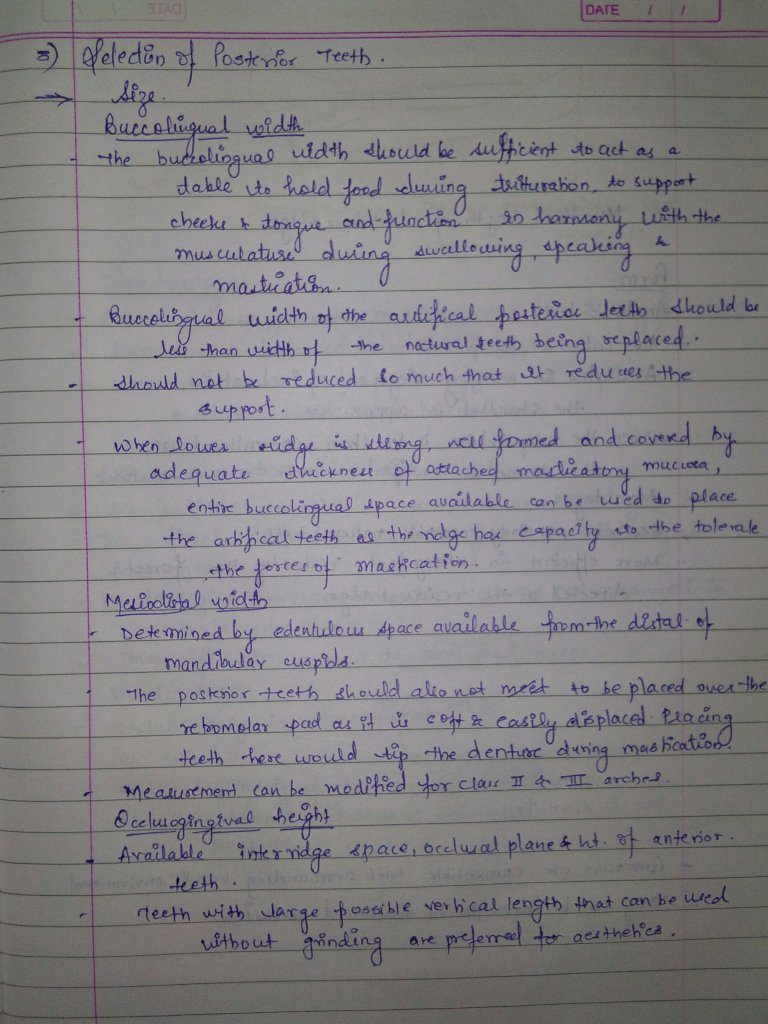 DATE / /
3) Selection of Posterior Teeth.
→ Size.
Buccolingual width
- The buccolingual width should be sufficient to act as a
table to hold food during trituration, to support
cheeks & tongue and function in harmony with the
musculature during swallowing, speaking &
mastication.
- Buccolingual width of the artifical posterior teeth should be
less than width of the natural teeth being replaced.
- should not be reduced so much that it reduces the
support.
- When lower ridge is strong, well formed and covered by
adequate thickness of attached masticatory mucosa,
entire buccolingual space available can be used to place
the artifical teeth as the ridge has capacity to the tolerate
the forces of mastication.
Mesiodistal width
- Determined by edentulous space available from the distal of
mandibular cuspids.
- The posterior teeth should also not meet to be placed over the
retromolar pad as it is soft & easily displaced. Placing
teeth here would tip the denture during mastication.
- Measurement can be modified for class II & III arches.
Occlusogingival height
- Available interridge space, occlusal plane & ht. of anterior.
teeth.
- Teeth with large possible vertical length that can be used
without grinding are preferred for aesthetics.